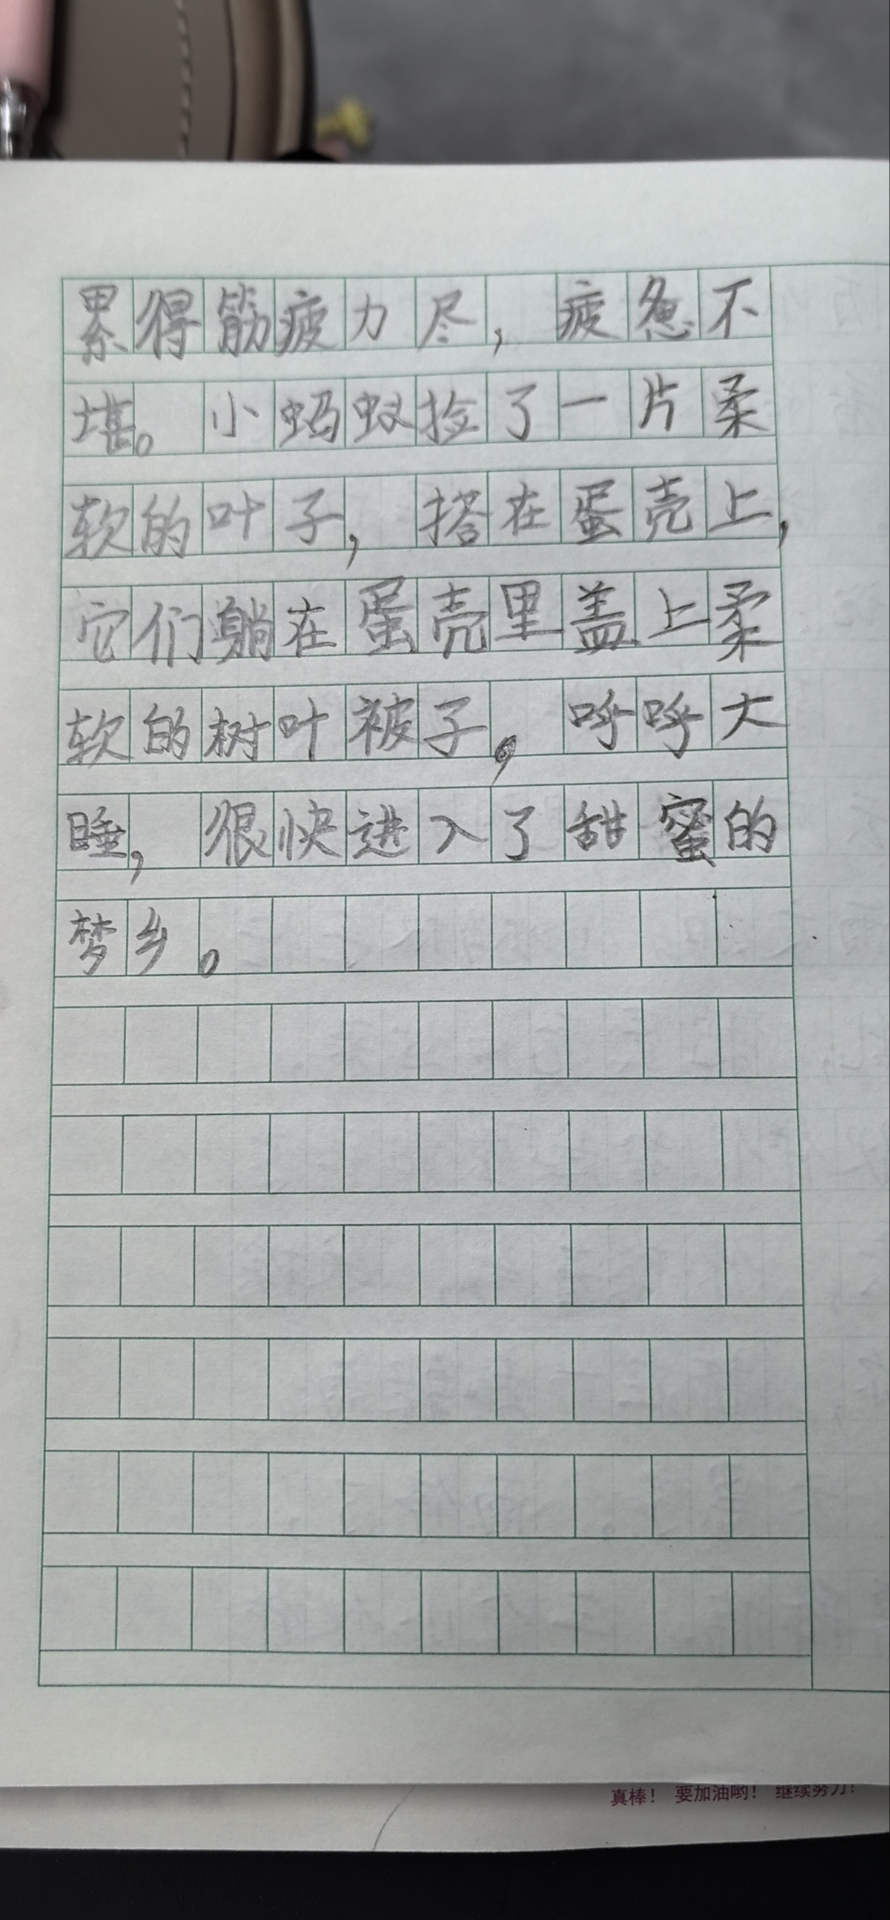 累得筋疲力尽，疲惫不
堪。小蚂蚁捡了一片柔
软的叶子，搭在蛋壳上，
它们躺在蛋壳里盖上柔
软的树叶被子，呼呼大
睡，很快进入了甜蜜的
梦乡。
真棒！ 要加油哟！ 继续努力！